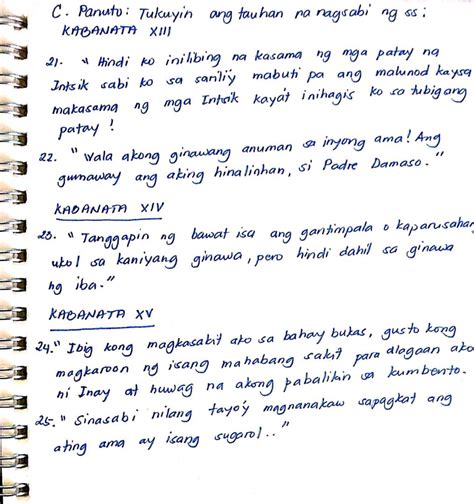 C. Panuto: Tukuyin ang tauhan na nagsabi ng ss:
KABANATA XIII
21. " Hindi ko inilibing na kasama ng mga patay na
Intsik sabi ko sa sarily mabuti pa ang malunod kaysa
makasama ng mga Intsik kaya't inihagis ko sa tubig ang
patay !
22. " Wala akong ginawang anuman sa inyong ama! Ang
gumaway ang aking hinalinhan, si Padre Damaso."
KABANATA XIV
23. " Tanggapin ng bawat isa ang gantimpala o kaparusahan
ukol sa kaniyang ginawa, pero hindi dahil sa ginawa
ng iba."
KABANATA XV
24. " Ibig kong magkasabit ako sa bahay bukas, gusto kong
magkaroon ng isang mahabang sakit para alagaan ako
ni Inay at huwag na akong pabalikin sa kumbento.
25. " Sinasabi nilang tayo'y magnanakaw sapagkat ang
ating ama ay isang sugarol.. "